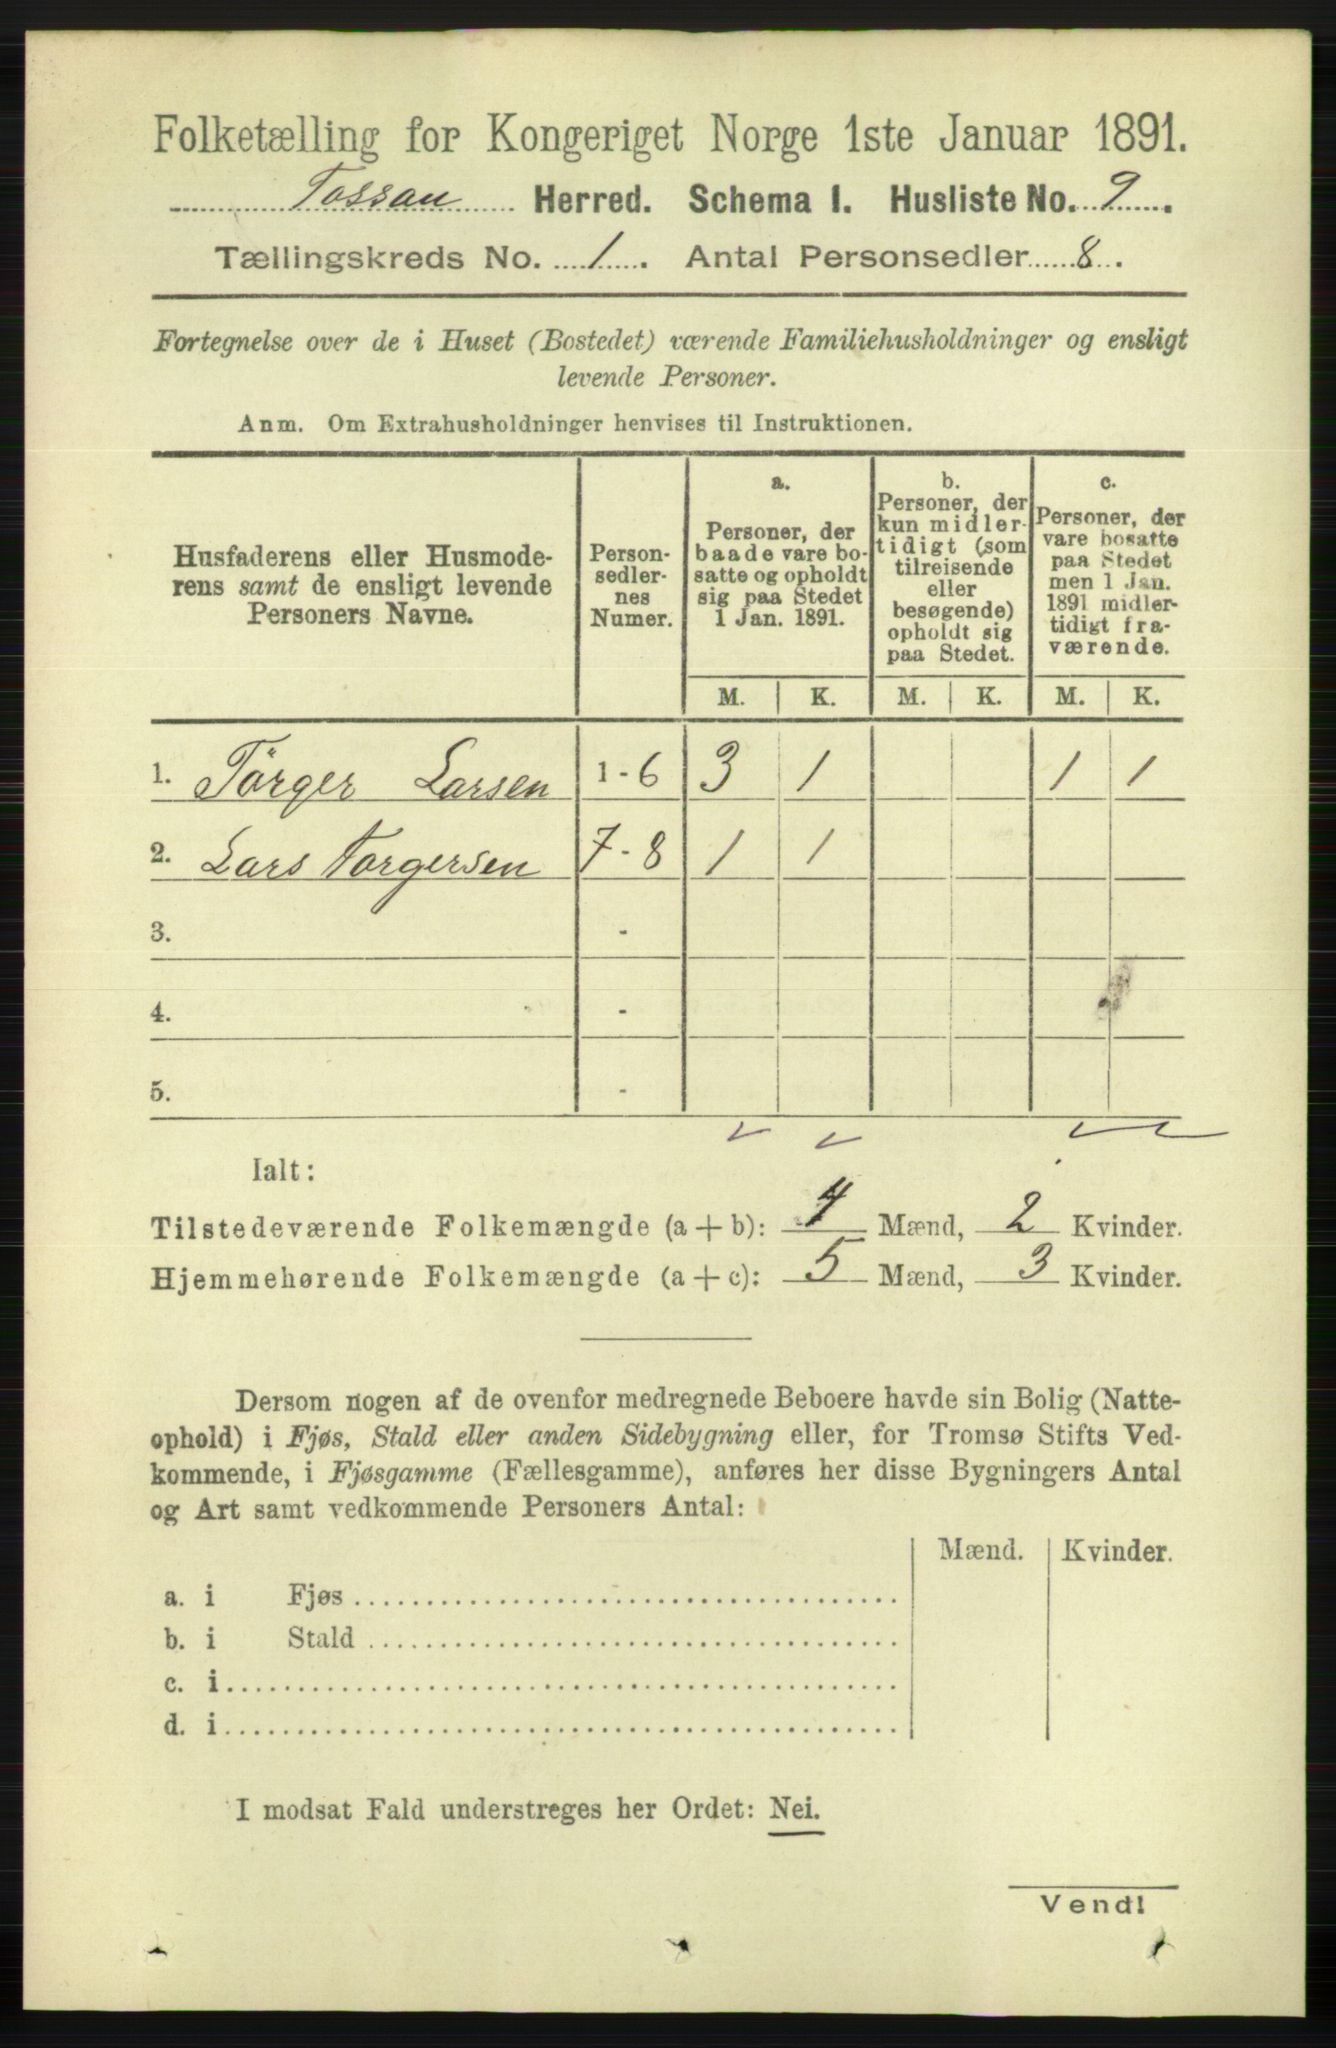 Folketælling for Kongeriget Norge 1ste Januar 1891.
Fossan Herred. Schema I. Husliste No. 9.
Tællingskreds No. 1. Antal Personsedler 8.
Fortegnelse over de i Huset (Bostedet) værende Familiehusholdninger og ensligt
levende Personer.
Anm. Om Extrahusholdninger henvises til Instruktionen.
Husfaderens eller Husmode-
rens samt de ensligt levende
Personers Navne.
Person-
sedler-
nes
Numer.
a.
Personer, der
baade vare bo-
satte og opholdt
sig paa Stedet
1 Jan. 1891.
b.
Personer, der
kun midler-
tidigt (som
tilreisende
eller
besøgende)
opholdt sig
paa Stedet.
c.
Personer, der
vare bosatte
paa Stedet
men 1 Jan.
1891 midler-
tidigt fra-
værende.
M. K. M. K. M. K.
1. Tørger Larsen 1-6 3 1 1 1
2. Lars Torgersen 7-8 1 1
3. -
4. -
5. -
Ialt:
Tilstedeværende Folkemængde (a+b): 4 Mænd, 2 Kvinder.
Hjemmehørende Folkemængde (a+c): 5 Mænd, 3 Kvinder.
Dersom nogen af de ovenfor medregnede Beboere havde sin Bolig (Natte-
ophold) i Fjøs, Stald eller anden Sidebygning eller, for Tromsø Stifts Ved-
kommende, i Fjøsgamme (Fællesgamme), anføres her disse Bygningers Antal
og Art samt vedkommende Personers Antal:
Mænd. Kvinder.
a. i Fjøs
b. i Stald
c. i
d. i
I modsat Fald understreges her Ordet: Nei.
Vend!